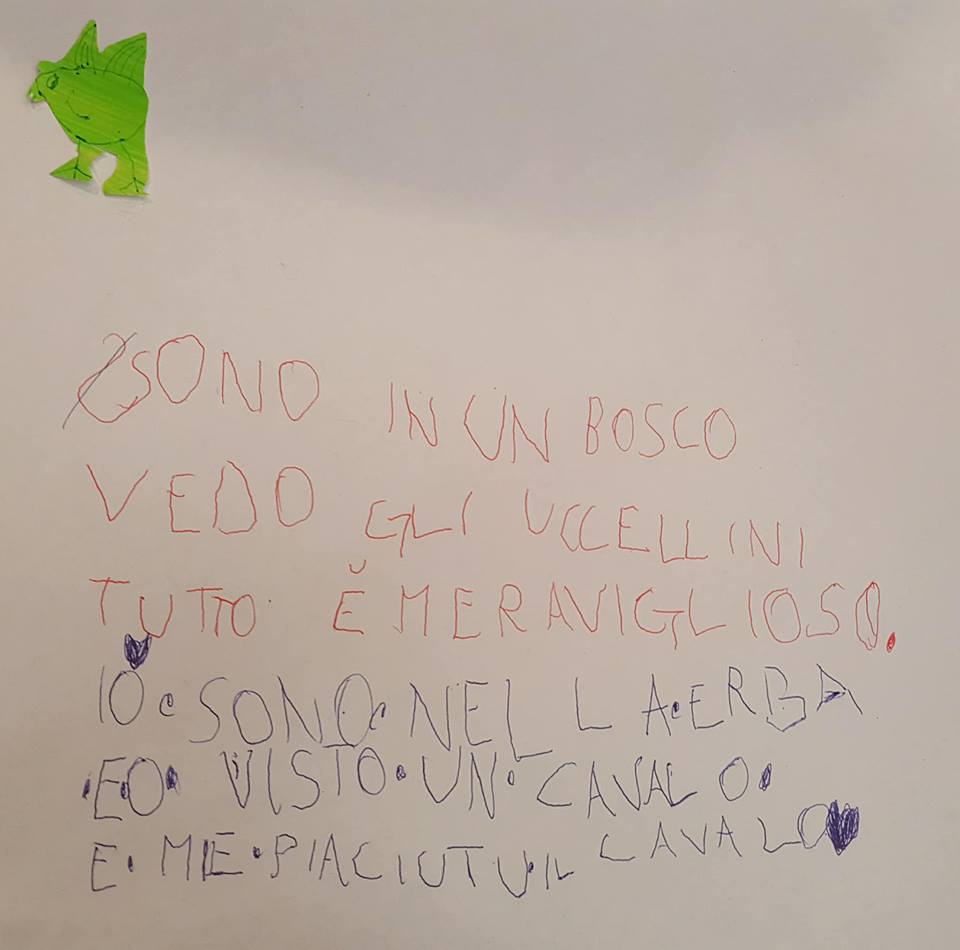 SONO IN UN BOSCO
VEDO GLI UCCELLINI
TUTTO Ĕ MERAVIGLIOSO.
IO • SONO • NELLA • ERBA
• E • O • VISTO • UN • CAVALO •
E • ME • PIACIUTU • IL CAVALO